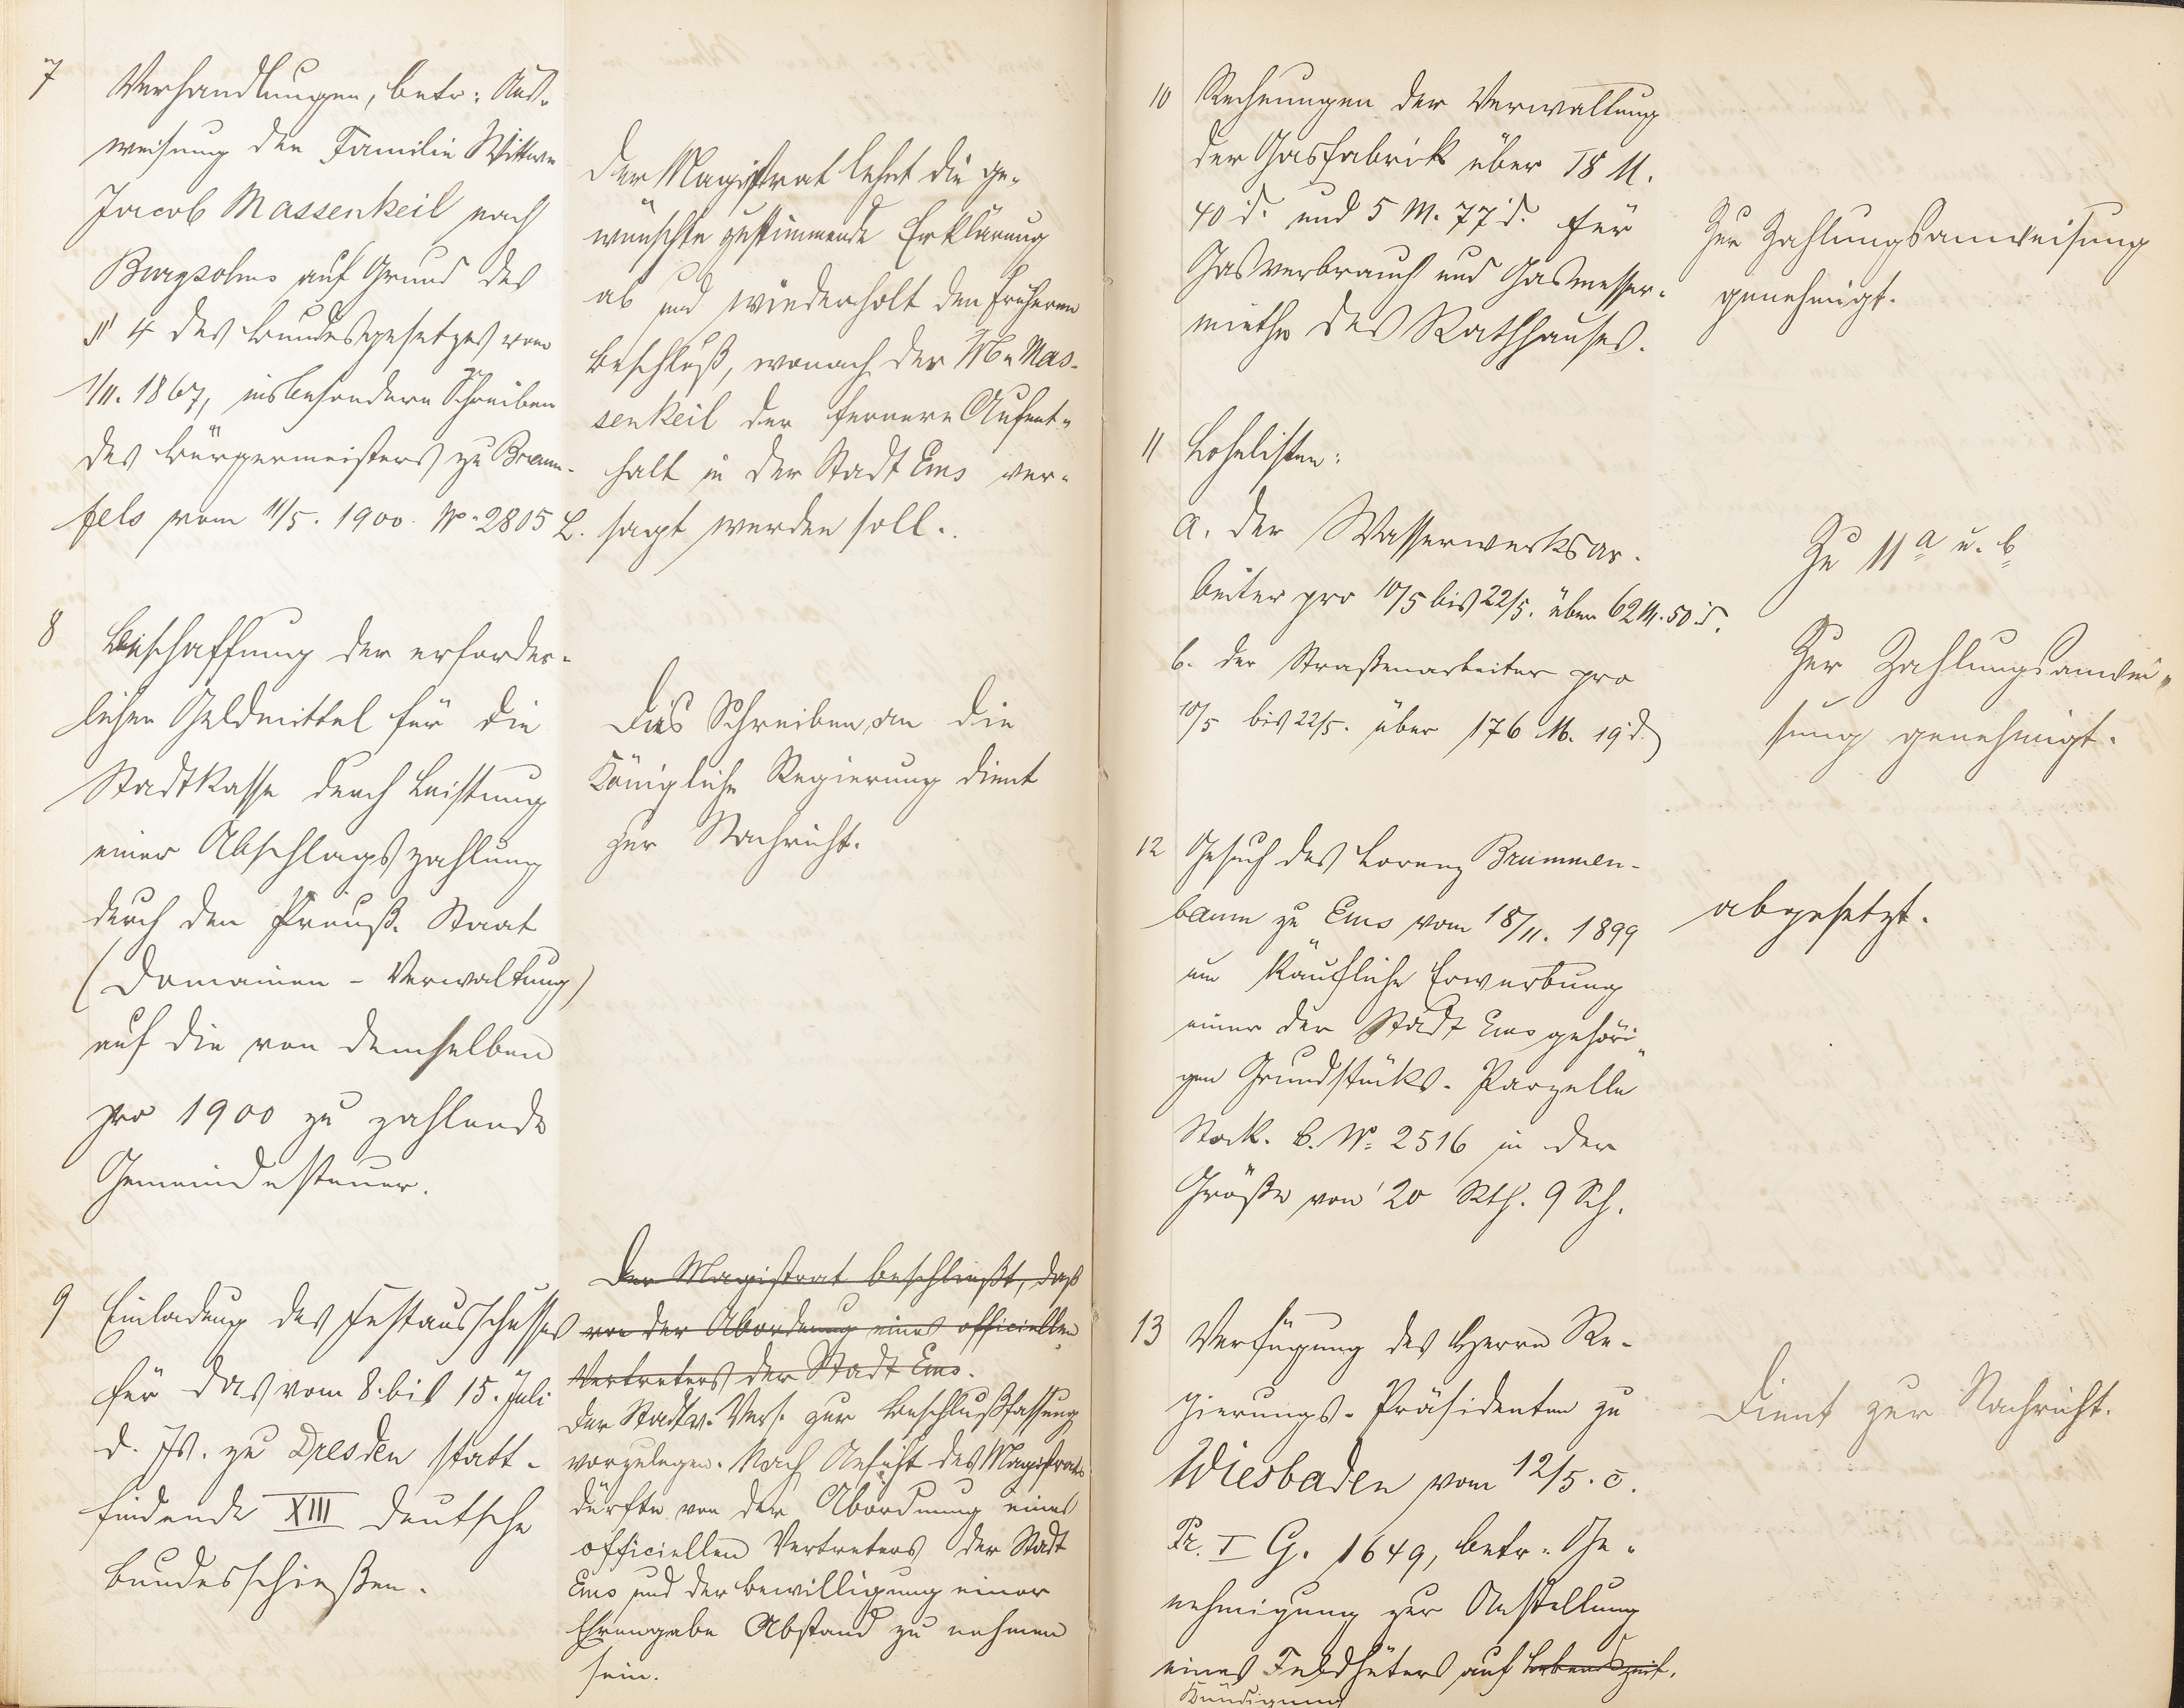 7
Verhandlungen, betr: Aus-
weisung der Familie Wittwe
Jacob Massenkeil nach
Burgsolms auf Grund des
§ 4 des Bundesgesetzes vom
1/11. 1867, insbesondere Schreiben
des Bürgermeisters zu Braun-
fels vom 11/5. 1900. No 2805 L.
Der Magistrat lehnt die ge-
wünschte zustimmende Erklärung
ab und wiederholt den früheren
Beschluß, wonach der Mas-
senkeil der fernere Aufent-
halt in der Stadt Ems ver-
sagt werden soll.
8
Beschaffung der erforder-
lichen Geldmittel für die
Stadtkasse durch Leistung
einer Abschlagszahlung
durch den Preuß. Staat
(Domainen-Verwaltung)
auf die von demselben
pro 1900 zu zahlende
Gemeindesteuer.
Das Schreiben an die
Königliche Regierung dient
zur Nachricht.
9
Einladung des Festausschusses
für das vom 8. bis 15. Juli
d. Js. zu Dresden statt-
findende XIII deutsche
Bundesschießen.
Der Magistrat beschließt, daß
von der Abordnung eines officiellen
Vertreters der Stadt Ems.
Der Stadtv. Vers. zur Beschlußfassung
vorzulegen. Nach Ansicht des Magistrats
dürfte von der Abordnung eines
officiellen Vertreters der Stadt
Ems und der Bewilligung einer
Ehrengabe Abstand zu nehmen
sein.
10
Rechnungen der Verwaltung
der Gasfabrik über 18 M.
40 d. und 5 M. 77 d. für
Gasverbrauch und Gasmesser-
miethe des Rathhauses.
Zur Zahlungsanweisung
genehmigt.
11
Lohnlisten:
a. der Wasserwerksar-
beiter pro 10/5 bis 22/5. über 62 M. 50 d.
b. der Straßenarbeiter pro
10/5 bis 22/5. über 176 M. 19 d.
Zu 11 a u. b
Zur Zahlungsanwei-
sung genehmigt.
12
Gesuch des Lorenz Brummen-
baum zu Ems vom 18/11. 1899
um käufliche Erwerbung
einer der Stadt Ems gehöri-
gen Grundstücks-Parzelle
Stock. b. No 2516 in der
Größe von 20 Rth. 9 Sch.
abgesetzt.
13
Verfügung des Herrn Re-
gierungs-Präsidenten zu
Wiesbaden vom 12/5. c.
Pr. I G. 1649, betr. Ge-
nehmigung zur Anstellung
eines Feldhüters auf Lebenszeit.
Kündigung
Dient zur Nachricht.